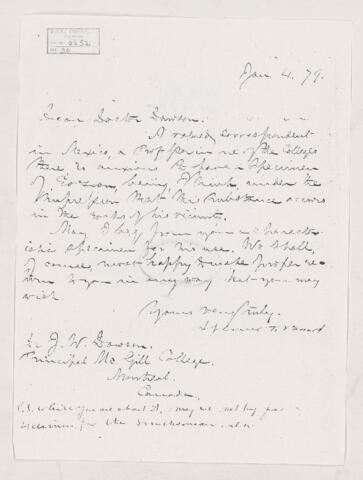 Jan 4. 79.
Dear Doctor Dawson.
A valued correspondent
in Mexico, a Professor in one of the Colleges
there, is anxious to have a specimen
of Eozoon, being, I think, under the
impression that this substance occurs
in the rocks of his vicinity.
May I beg from you a character-
istic specimen for his use. We shall,
of course, be most happy to make proper re-
turn to you in any way that you may
wish.
Yours very truly,
Spencer F. Baird
Dr J. W. Dawson.
Principal Mc Gill College.
Montreal.
Canada.
P.S. While you are about it, may we not beg for a
specimen for the Smithsonian also